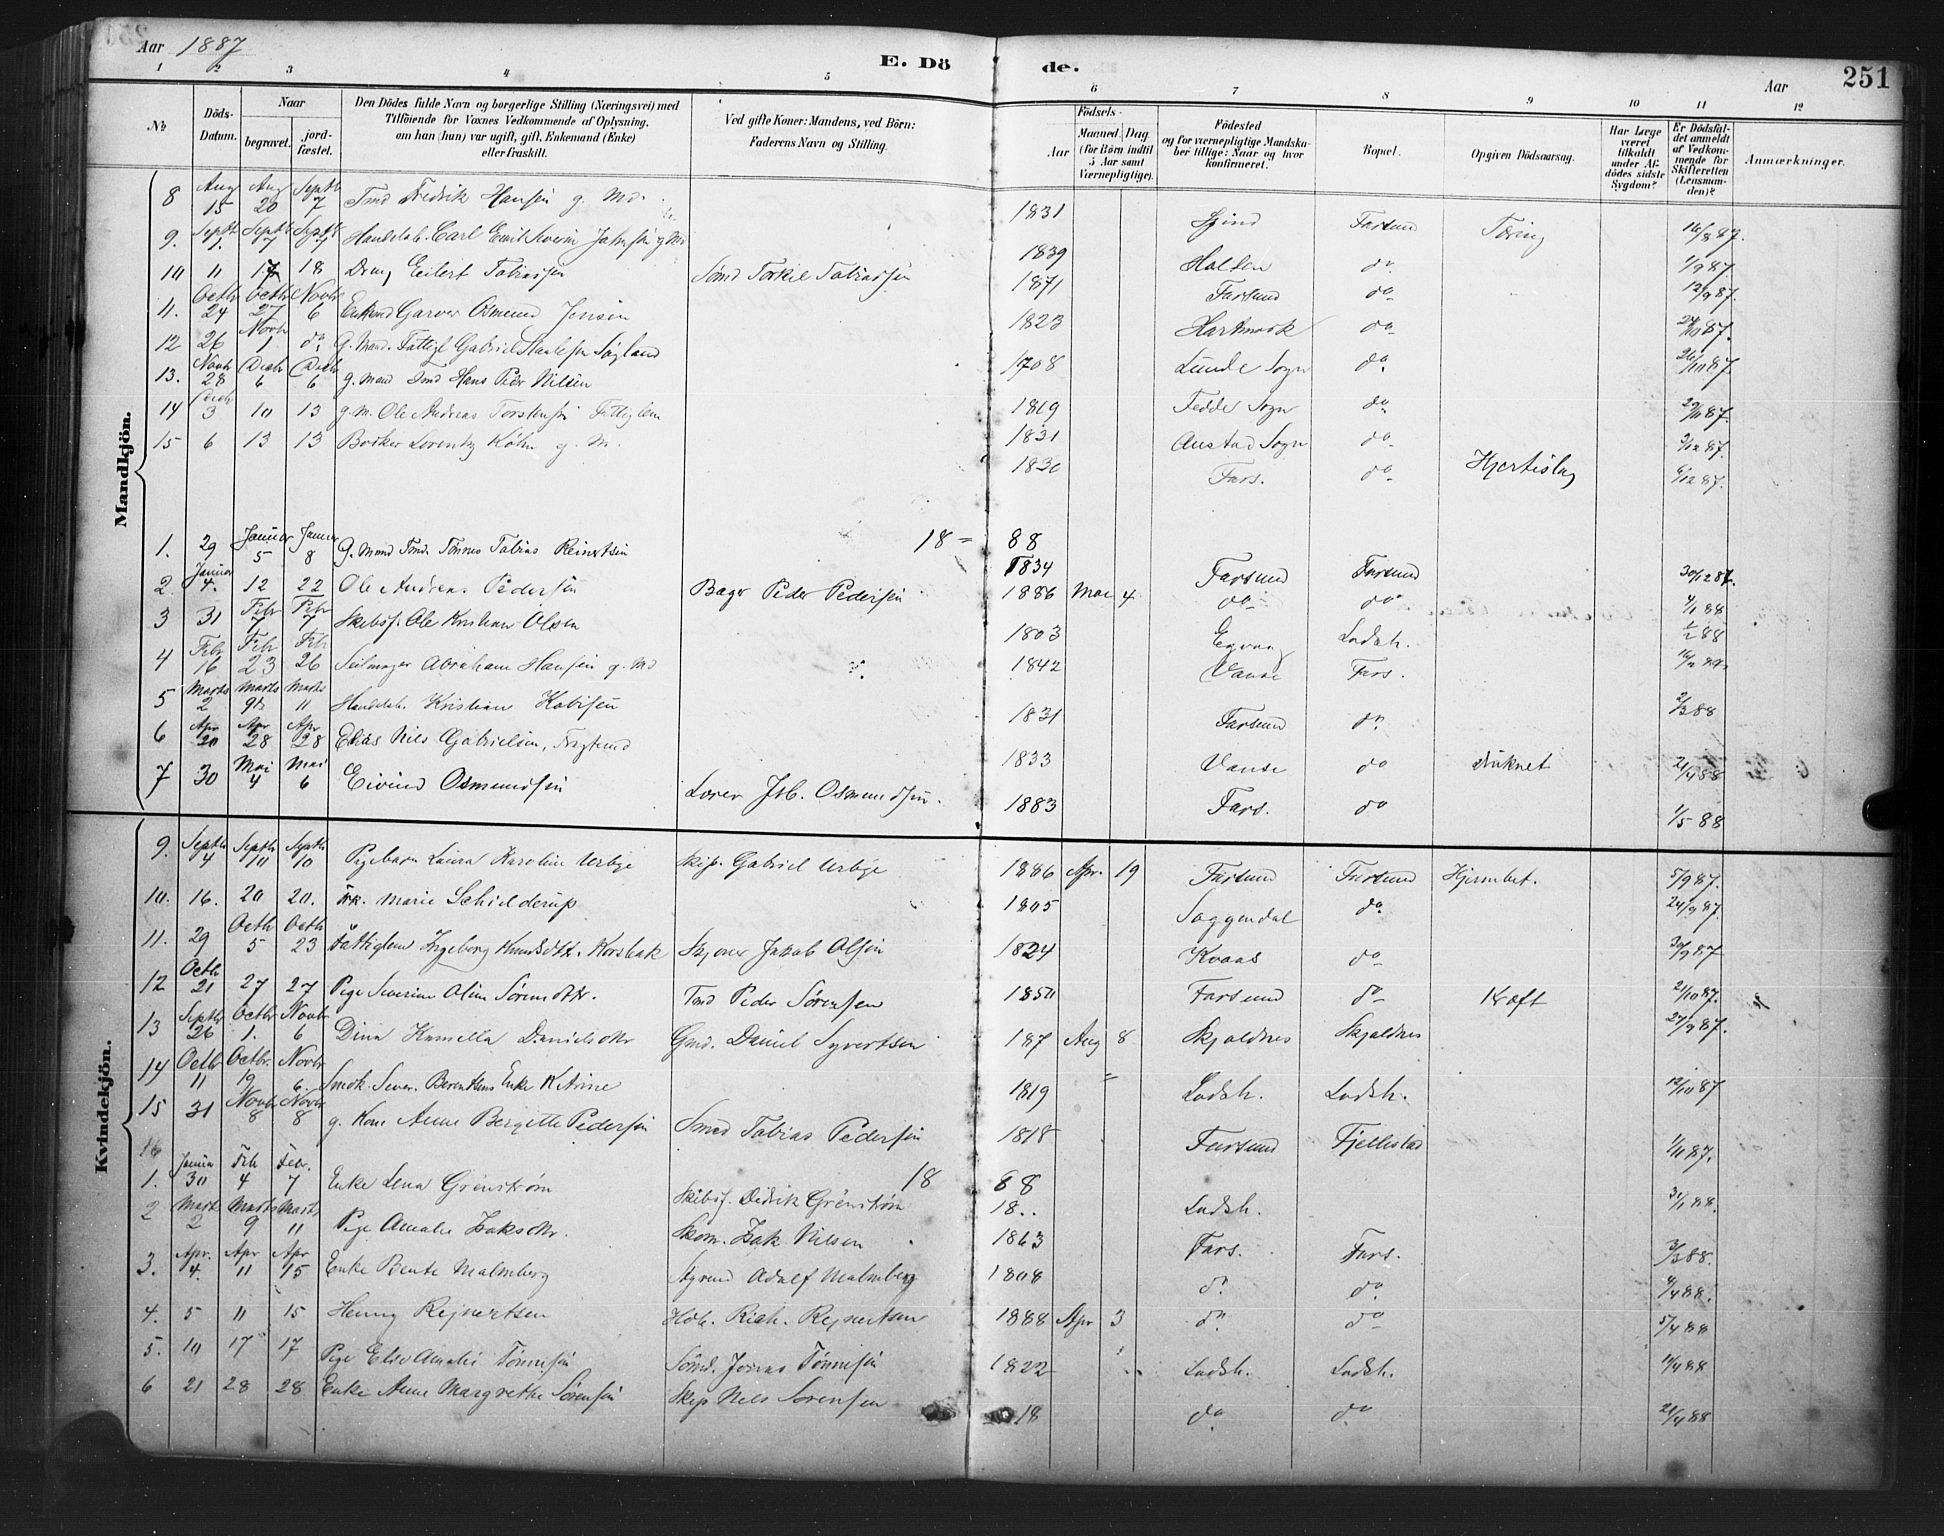 Aar 1887 E. Döde. Aar 251
1 2 3 4 5 6 7 8 9 10 11 12
No
Döds-Datum.
Naar
begravet.
jord-fæstet.
Den Dödes fulde Navn og borgerlige Stilling (Næringsvei) med
Tilföiende for Voxnes Vedkommende af Oplysning,
om han (hun) var ugift, gift, Enkemand (Enke)
eller fraskilt.
Ved gifte Koner: Mandens, ved Börn:
Faderens Navn og Stilling.
Födsels-
Aar
Maaned. Dag.
(for Börn indtil
5 Aar samt
Værnepligtige).
Födested
og for værnepligtige Mandsku-
ber tillige: Naar og hvor
konfirmeret.
Bopæl.
Opgiven Dödsaarsag.
Har Læge
været
tilkaldt
under Af-
dödes sidste
Sygdom?
Er Dödsfal-
det anmeldt
af Vedkom-
mende for
Skifteretten
(Lensman-
den)?
Anmærkninger.
Mandkjön.
8 Aug 15 Aug 20 Septb 7 Tmd Fredrik Hansen g. Md. 1831 Farsund Tæring 16/8 87.
9. Septbr 1. Septb 7 Septb 7 Handelsb. Carl Emil Severin Jahnsen g Md 1839 Halsen do 1/9 87.
10 11 17 18 Dreng Eilert Tobiassen Sömd Torkil Tobiassen 1871 Farsund do 12/9 87.
11. Octb 24 Octb 27 Novbr 6 Enkemd Garver Osmund Jensen 1823 Hartmark do 24/10 87.
12 26 Novb 1 do G. Mand. Fattigl Gabriel Søgland 1708 Lunde Sogn do 26/10 87.
13. Novb 28 Decb 6 Decb 6 g. mand Smd Hans Peder Nilsen 1819 Fedde Sogn do 29/11 87.
14 Decb 3 10 13 g. m. Ole Andreas Torstensen Fattiglem 1831 Austad Sogn do 3/12 87.
15 6 13 13 Lorentz Köhn g. M. 1830 Fars. do Hjerteslag 6/12 87.
18 = 88
1. 29 Januar 5 Januar 8 G. Mand Tmd. Tönnes Tobias Reinertsen 1834 Farsund Farsund 30/12 87.
2. Januar 4. 12 22 Ole Andreas Pedersen Bager Peder Pedersen 1886 Mai 4 do do 4/1 88
3 31 Febr 7 Febr 7 Skibsf. Ole Kristian Olsen 1803 Egvaag Lodsh. 1/2 88
4 Febr 16 Febr 23 Febr 26 Seilmager Abraham Hansen g. Md 1842 Vanse Fars. 16/2 88.
5 Marts 2 Marts 9de Marts 11 Handelsb. Kristian Kobisen 1831 Farsund do 2/3 88
6 Apr 20 Apr 28 Apr 28 Elias Nils Gabrielsen, 1833 Vanse do druknet 21/4 88
7 30 Mai 4 Mai 6 Eivind Osmundsen Lærer Jsb. Osmundsen. 1883 Fars. do 1/5 88
Kvindekjön.
9. Septb 4 Septb 10 Septb 10 Pigebarn Laura Karoline Urbye Skip. Gabriel Urbye 1886 Apr. 19 Farsund Farsund Hjernebet. 5/9 87.
10. 16. 20 20. Frk. Marie Schielderup 1805 Soggendal do 24/9 87.
11. 29 Octb 5 Octb 23 Fattiglem Ingeborg Knudsdtr. Korsbak Jakob Olsen 1824 Kvaas do 30/9 87
12 Octb 21 27 27 Pige Severine Oline Sörensdtr. Tmd Peder Sörensen 1850 Farsund do Kræft 21/10 87.
13 Septbr 26 Octbr 1. Novbr 6 Dina Kamella Danielsdtr Gmd. Daniel Syvertsen 187 Aug 8 Skjoldnes Skjoldnes 27/9 87.
14 Octbr 11 Octbr. 19 Novbr 6. Smedk. Sever. Berentsens Enke Katrine 1819 Lodsh. Lodsh. 12/10 87
15 31 Novbr 8 Novbr 8 g. Kone Anne Bergitte Pedersen Smed Tobias Pedersen 1818 Farsund Fjellestad 1/11 87.
16
18 88
1. Januar 30 Feb 4 Febr. 7 Enke Lena Grenström Skibsf. Didrik Grenström 18.. Lodsh. 31/1 88.
2 Marts 2 Marts 9 Marts 11 Pige Amalie Isaksdtr. Skom. Isak Nilsen 1863 Fars. Fars. 3/3 88.
3. Apr. 4. Apr 11 Apr 15 Enke Bente Malmberg Styrmd Adolf Malmberg 1808 do do 4/4 88.
4. 5 11 15 Henny Reinertsen Hdb. Rich. Reinertsen 1888 Apr 3 do do 5/4 88
5. 10 17 17 Pige Else Amalie Tönnesen Sömd. Jonas Tönnesen 1822 Lodsh. Lodsh. 11/4 88
6 21 28 28 Enke Anne Margrethe Sörensen Skip Nils Sörensen 18 do do 21/4 88